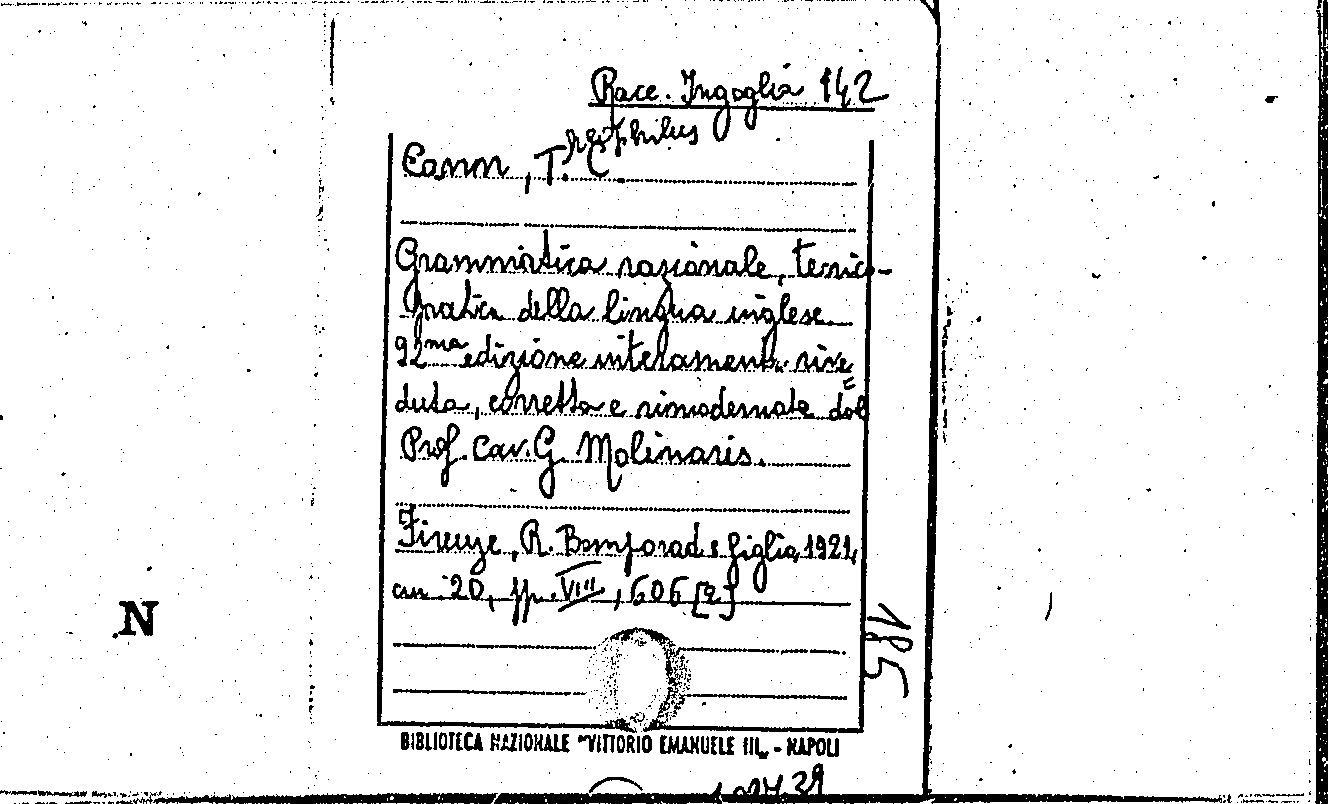 Race. Ingoglia 142
Theophilus
Cann, T. C.
Grammatica razionale, tecnico-
pratica della lingua inglese.
92ma edizione interamente rive
=
duta, corretta e rimodernata dal
Prof. Cav. G. Molinaris.
Firenze, R. Bemporad e figlio, 1921,
cm 20, pp. VIII, 606 [2]
N
185
BIBLIOTECA NAZIONALE "VITTORIO EMANUELE III„ - NAPOLI